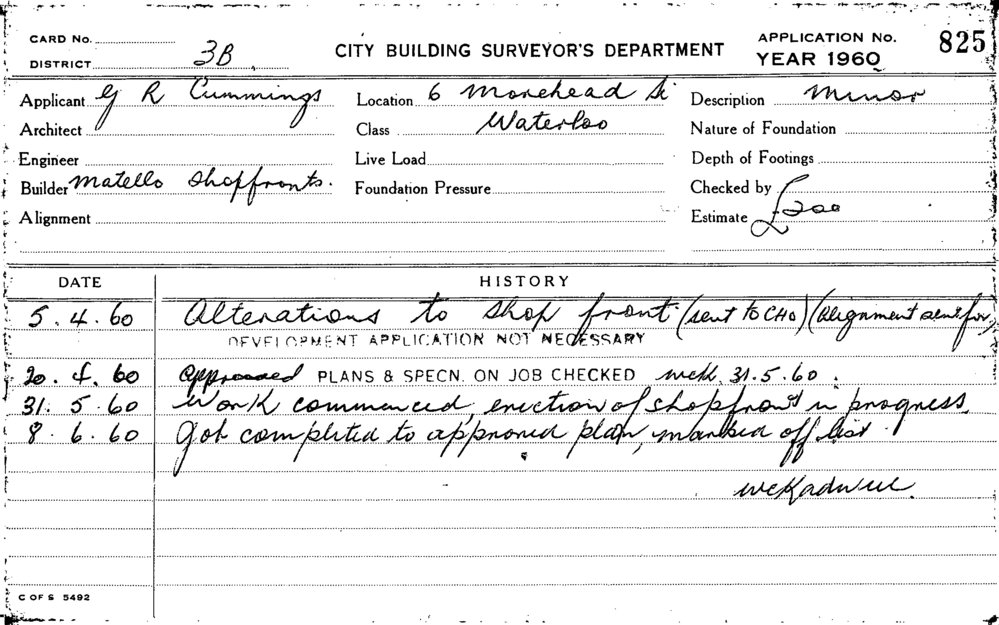 CARD No.
DISTRICT 3B
CITY BUILDING SURVEYOR'S DEPARTMENT
APPLICATION No. 825
YEAR 1960
Applicant G R Cummings
Location 6 Morehead St
Description Minor
Architect
Class Waterloo
Nature of Foundation
Engineer
Live Load
Depth of Footings
Builder Matello Shopfronts.
Foundation Pressure
Checked by
Alignment
Estimate £200
DATE HISTORY
5.4.60 Alterations to shop front (sent to CHO) (alignment sent for)
DEVELOPMENT APPLICATION NOT NECESSARY
20.4.60 Approved PLANS & SPECN. ON JOB CHECKED WCK. 31.5.60.
31.5.60 Work commenced, erection of shopfront in progress.
8.6.60 Job completed to approved plan, marked off list.
C OF S 5492